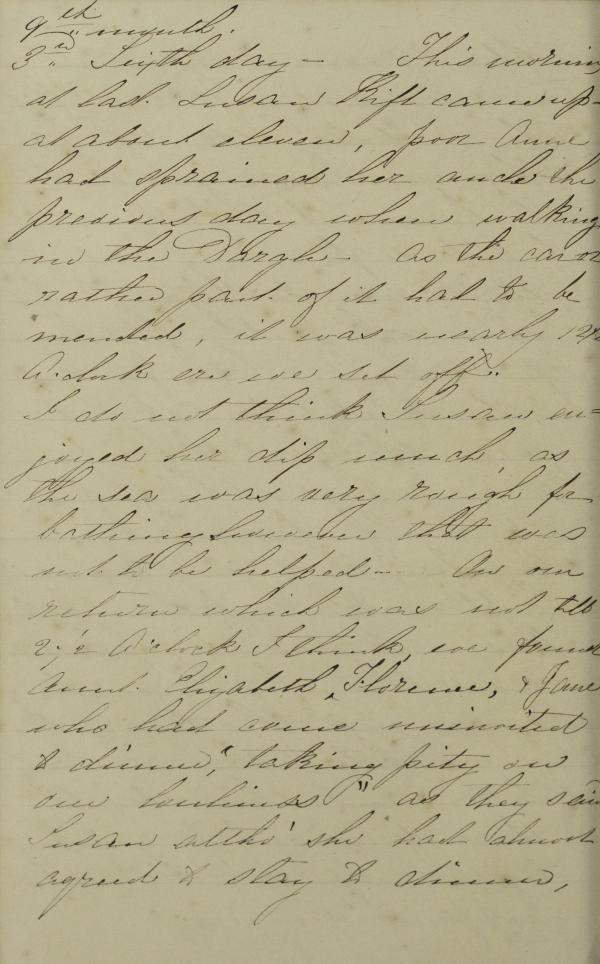 9th month.
3rd Sixth day - This morning
at last Susan Rift came up -
at about eleven, poor Anne
had sprained her ancle the
previous day when walking
in the Dargle - as the car or
rather part of it had to be
mended, it was nearly 12½
O'clock ere we set off.
I do not think Susan en=
joyed her dip much, as
the sea was very rough for
bathing however that was
not to be helped - On our
return which was not till
2½ O'clock I think, we found
Aunt Elizabeth, Florence, & Jane
who had come uninvited
to dinner, "taking pity on
our loneliness" as they said
Susan altho' she had almost
agreed to stay to dinner,